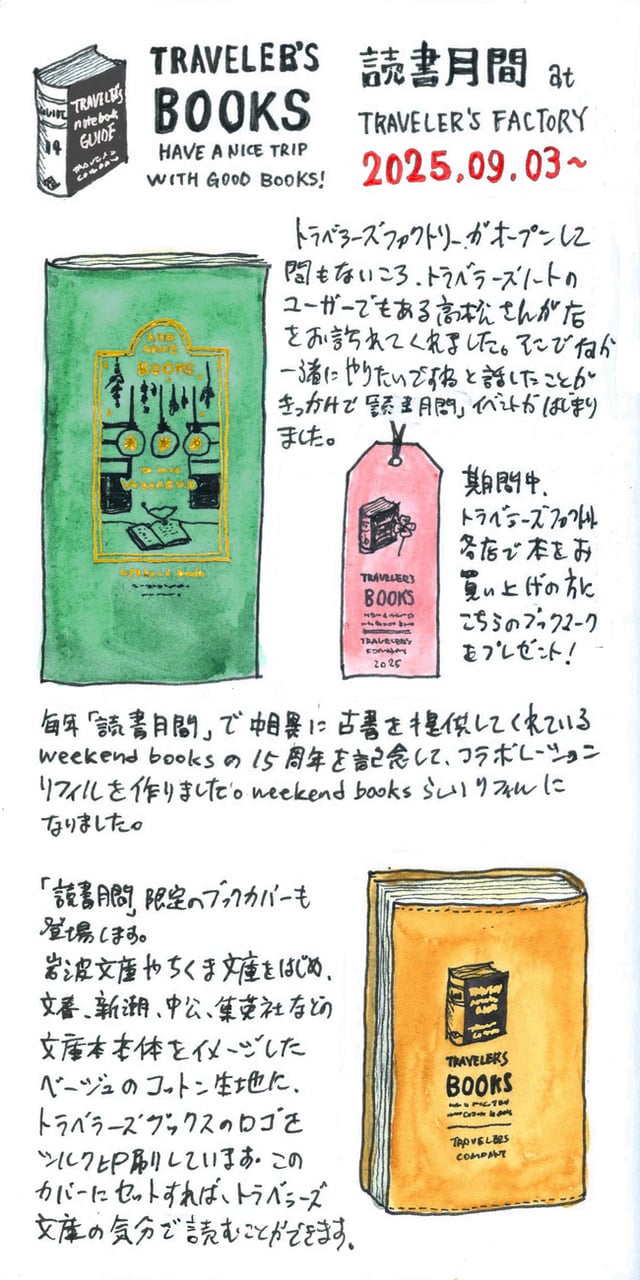 TRAVELER'S
notebook
GUIDE
14
TRAVELER'S
COMPANY
TRAVELER'S
BOOKS
HAVE A NICE TRIP
WITH GOOD BOOKS!
読書月間 at
TRAVELER'S FACTORY
2025.09.03~
トラベラーズファクトリーがオープンして
間もないころ、トラベラーズノートの
ユーザーでもある高松さんが店
をお訪れてくれました。そこでなにか
一緒にやりたいですねと話したことが
きっかけで「読書月間」イベントがはじまり
ました。
BOOKS
WEEKEND
TRAVELER'S
BOOKS
TRAVELER'S
COMPANY
2025
期間中、
トラベラーズファクトリー
各店で本をお
買い上げの方に
こちらのブックマーク
をプレゼント!
毎年「読書月間」で中目黒に古書を提供してくれている
weekend booksの15周年を記念して、コラボレーション
リフィルを作りました。weekend booksらしいリフィルに
なりました。
「読書月間」限定のブックカバーも
登場します。
岩波文庫やちくま文庫をはじめ、
文春、新潮、中公、集英社などの
文庫本本体をイメージした
ベージュのコットン生地に、
トラベラーズブックスのロゴを
シルク印刷しています。この
カバーにセットすれば、トラベラーズ
文庫の気分で読むことができます。
TRAVELER'S
BOOKS
TRAVELER'S
COMPANY